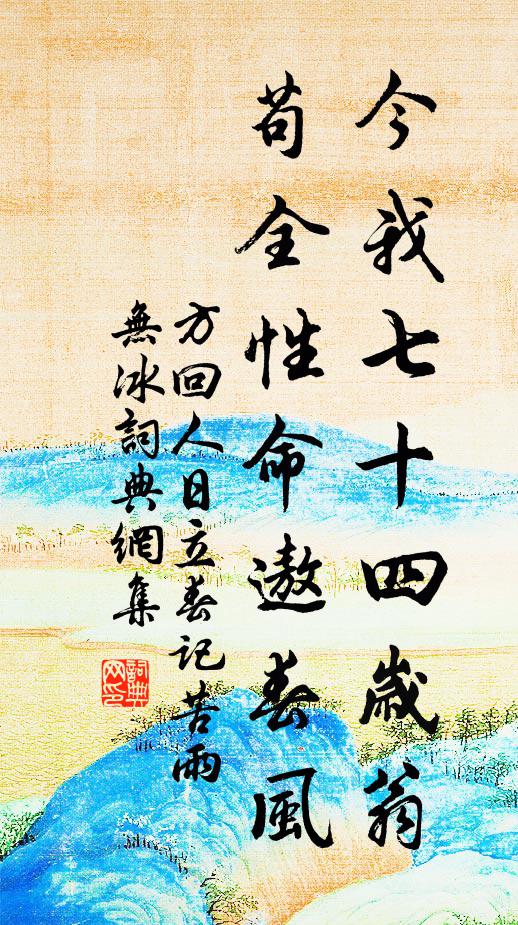 今我七十四歲翁
苟全性命遨春風
方回人日立春記苦雨
無冰詞典網集
詞典網印